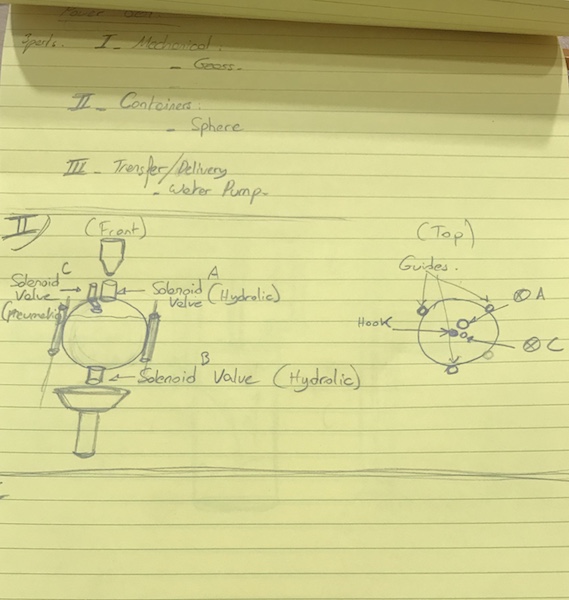 Power
3 parts. I - Mechanical.
- Gears.
II - Containers.
- Sphere
III - Transfer/Delivery
- Water Pump.
II)
(Front)
(Top)
C
Solenoid
Valve
(Pneumatic)
A
Solenoid
Valve (Hydrolic)
B
Solenoid Valve (Hydrolic)
Guides.
⊗ A
Hook
⊗ C